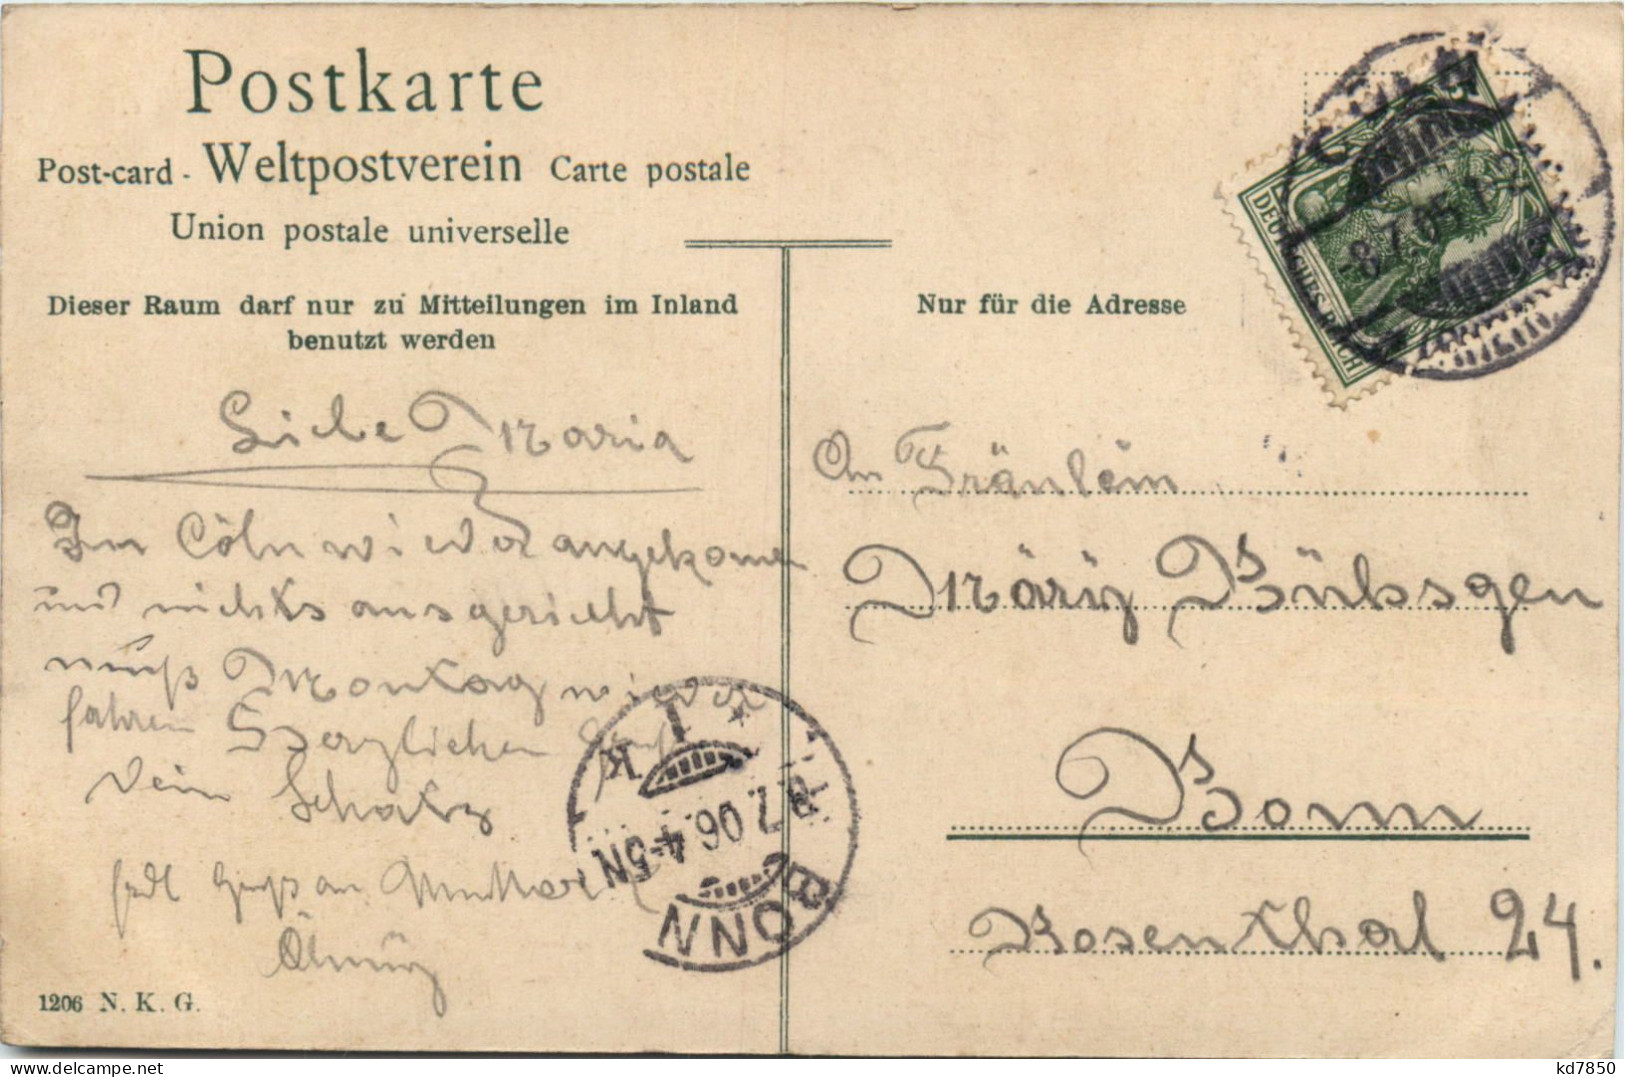 Postkarte
Post-card - Weltpostverein Carte postale
Union postale universelle
Dieser Raum darf nur zu Mitteilungen im Inland
benutzt werden
Liebe Maria
In Cöln wieder angekomen
und nichts ausgericht
muß Montag wieder
fahren Herzlichen
Dein Schatz
Gruß an Mutter
1206 N. K. G.
Nur für die Adresse
DEUTSCHES REICH
5
-8.7.05.1-2
An Fräulein
Märiy Bühsgen
Bonn
Rosenthal 24.
BONN
8.7.06.4-5N
* 1 K
kd7850